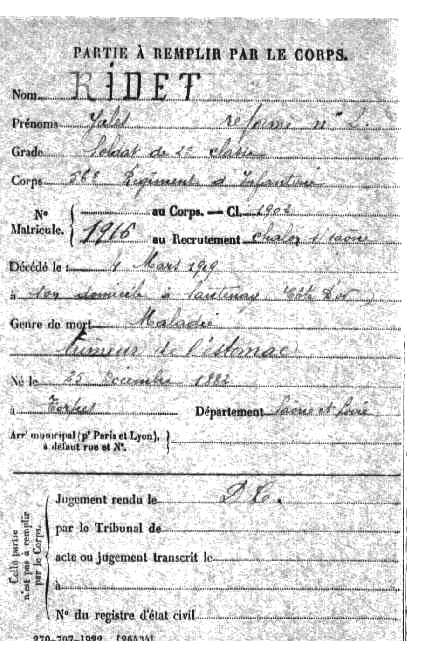 PARTIE À REMPLIR PAR LE CORPS.
Nom RIDET
Prénoms Jules réformé n° 2.
Grade Soldat de 2e classe
Corps 56e Régiment d'Infanterie
N° Matricule. { au Corps. — Cl. 1902
1916 au Recrutement Chalon s Saône
Décédé le : 4 Mars 1919
à son domicile à Santenay Côte d'Or
Genre de mort Maladie
Tumeur de l'estomac
Né le 25 Décembre 1882
à Département Saône et Loire
Arrt municipal (pr Paris et Lyon), à défaut rue et N°. }
Cette partie n'est pas à remplir par le Corps.
Jugement rendu le
par le Tribunal de
acte ou jugement transcrit le
à
N° du registre d'état civil